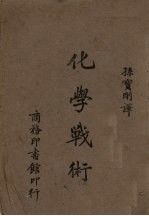 孫寶剛譯
化學戰術
商務印書館印行